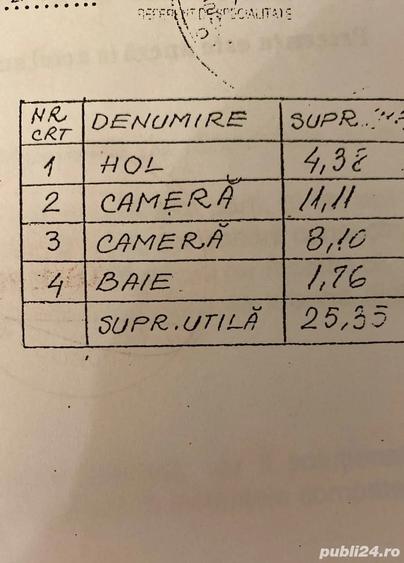 REFERENT DE SPECIALITATE
NR CRT DENUMIRE
1 HOL 4,38
2 CAMERĂ 11,11
3 CAMERĂ 8,10
4 BAIE 1,76
SUPR. UTILĂ 25,35
publi24.ro